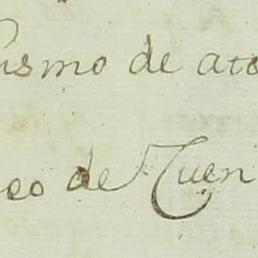 ismo de ato
eo de Cuen